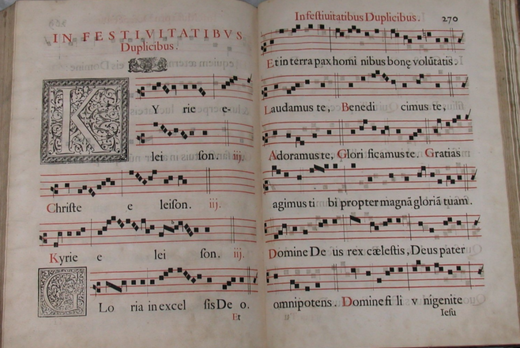 IN FESTIVITATIBVS
Duplicibus.
KYrie
e lei son. iij.
Christe e leison. iij.
Kyrie e lei son. iij.
GLo ria in excel sis De o.
Et
In festivitatibus Duplicibus. 270
Et in terra pax homi nibus bonę volūtatis.
Laudamus te, Benedi cimus te,
Adoramus te, Glori ficamus te. Gratias
agimus ti bi propter magnā gloriā tuam.
Domine De us rex cælestis, Deus pater
omnipotens. Domine fi li v nigenite
Iesu